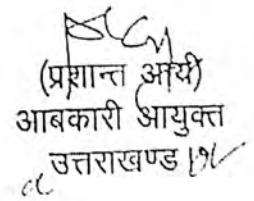 (प्रशान्त आर्य)
आबकारी आयुक्त
उत्तराखण्ड